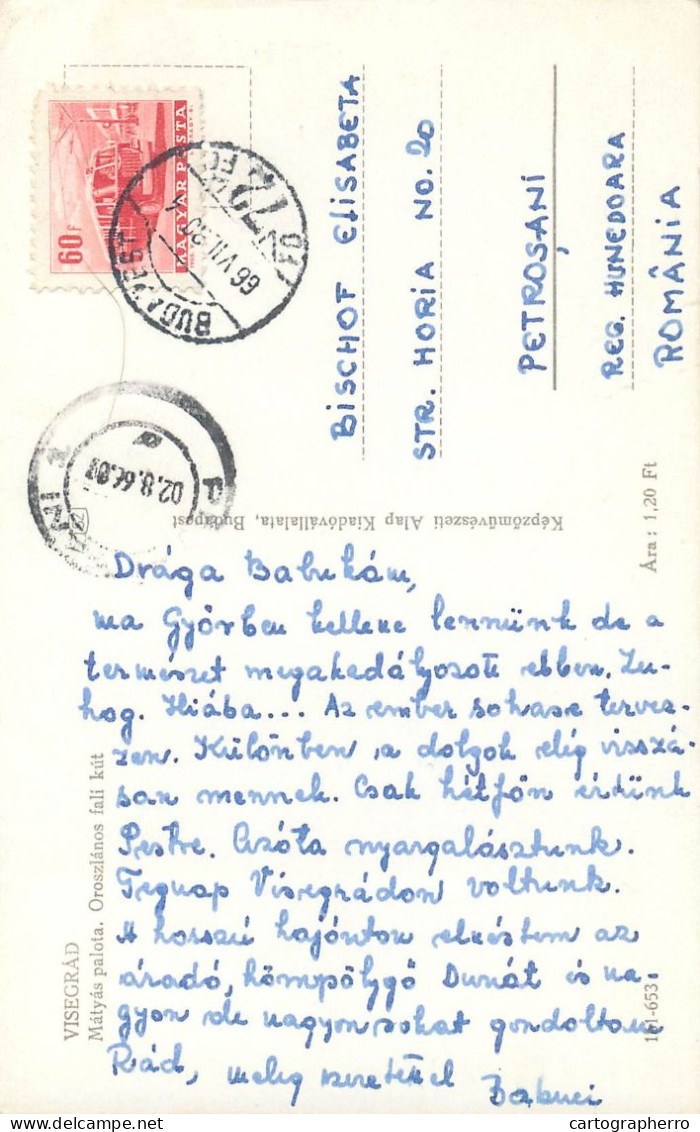 60f
MAGYAR POSTA
BUDAPEST
66 VII.30
72
02.8.66.07
BISCHOF ELISABETA
STR. HORIA NO. 20
PETROȘANI
REG. HUNEDOARA
ROMÂNIA
Ára: 1,20 Ft
Képzőművészeti Alap Kiadóvállalata, Budapest
Drága Babukám,
ma Győrben kellene lennünk de a
természet megakadályozott ebben. Zu-
hog. Hiába... Az ember sohase tervez-
zen. Különben a dolgok elég visszá-
san mennek. Csak hétfőn értünk
Pestre. Azóta nyargalásztunk.
Tegnap Visegrádon voltunk.
A hosszú hajóúton elnéztem az
áradó, hömpölygő Dunát és na-
gyon de nagyon sokat gondoltam
Rád, meleg szeretettel
VISEGRÁD
Mátyás palota. Oroszlános fali kút
161-653
cartographerro